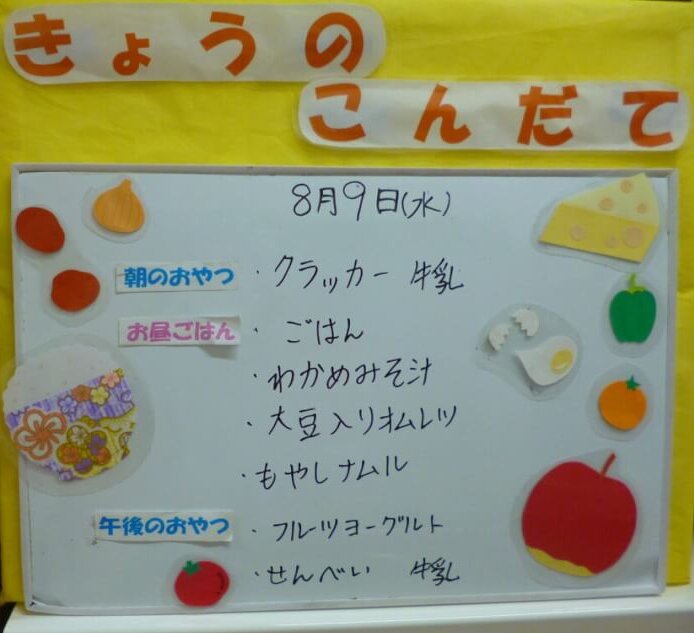 きょうの
こんだて
8月9日(水)
朝のおやつ ・クラッカー 牛乳
お昼ごはん ・ごはん
・わかめみそ汁
・大豆入りオムレツ
・もやしナムル
午後のおやつ ・フルーツヨーグルト
・せんべい 牛乳